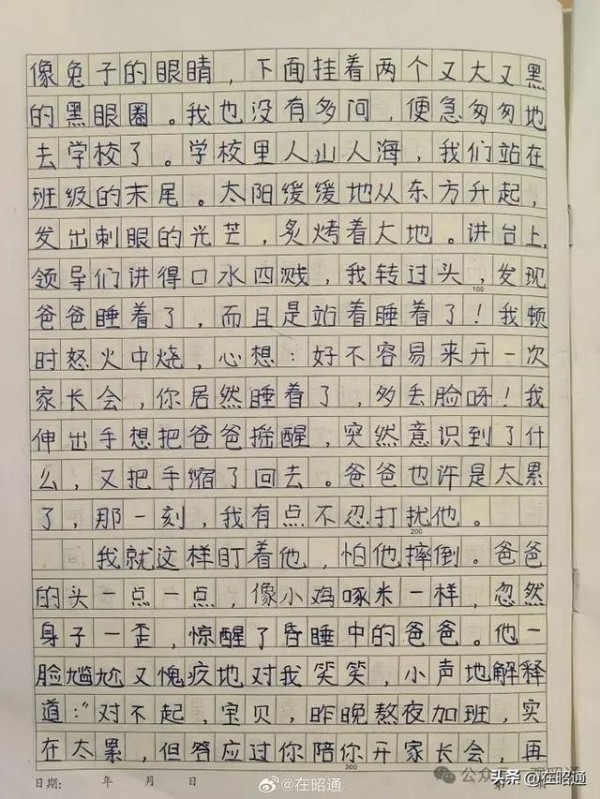 像兔子的眼睛，下面挂着两个又大又黑
的黑眼圈。我也没有多问，便急匆匆地
去学校了。学校里人山人海，我们站在
班级的末尾。太阳缓缓地从东方升起，
发出刺眼的光芒，炙烤着大地。讲台上，
领导们讲得口水四溅，我转过头，发现
100
爸爸睡着了，而且是站着睡着了！我顿
时怒火中烧，心想：好不容易来开一次
家长会，你居然睡着了，多丢脸呀！我
伸出手想把爸爸摇醒，突然意识到了什
么，又把手缩了回去。爸爸也许是太累
了，那一刻，我有点不忍打扰他。
200
我就这样盯着他，怕他摔倒。爸爸
的头一点一点，像小鸡啄米一样，忽然
身子一歪，惊醒了昏睡中的爸爸。他一
脸尴尬又愧疚地对我笑笑，小声地解释
道：“对不起，宝贝，昨晚熬夜加班，实
在太累，但答应过你陪你开家长会，再
300
日期： 年 月 日
@在昭通
头条 @在昭通